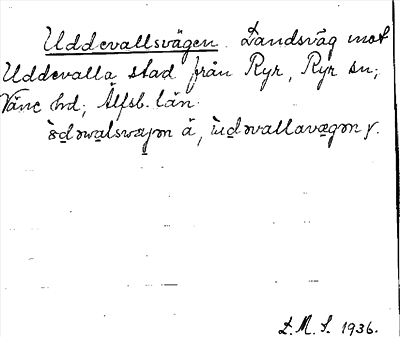 Uddevallsvägen. Landsväg mot
Uddevalla stad från Ryr, Ryr sn;
Väne hd; Älfsb. län.
å, y.
L. M. S. 1936.